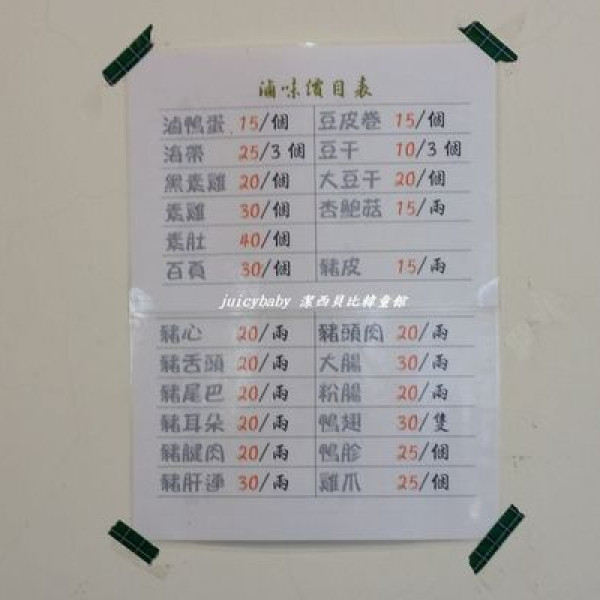 滷味價目表
滷鴨蛋 15/個 豆皮卷 15/個
海帶 25/3個 豆干 10/3個
黑素雞 20/個 大豆干 20/個
素雞 30/個 杏鮑菇 15/兩
素肚 40/個
百頁 30/個 豬皮 15/兩
juicybaby 潔西貝比韓童館
豬心 20/兩 豬頭肉 20/兩
豬舌頭 20/兩 大腸 30/兩
豬尾巴 20/兩 粉腸 20/兩
豬耳朵 20/兩 鴨翅 30/隻
豬腱肉 20/兩 鴨胗 25/個
豬肝連 30/兩 雞爪 25/個